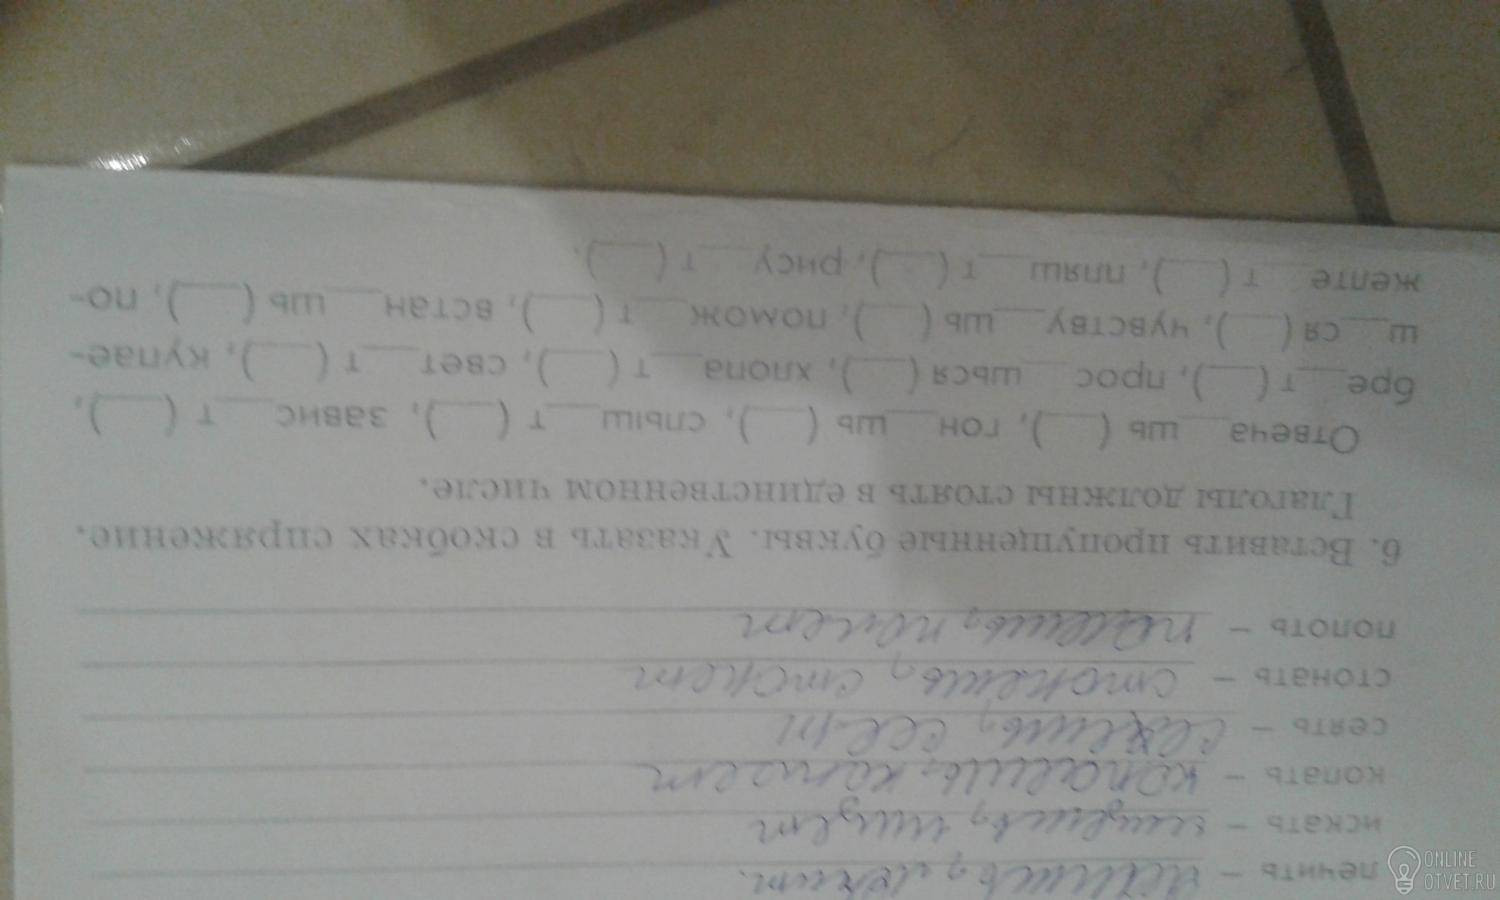 лечить – лечишь, лечит.
искать – ищешь, ищет
копать – копаешь, копает
сеять – сеешь, сеет
стонать – стонешь, стонет
полоть – полешь, полет
6. Вставить пропущенные буквы. Указать в скобках спряжение.
Глаголы должны стоять в единственном числе.
Отвеча___шь (___), гон___шь (___), слыш___т (___), завис___т (___),
бре___т (___), прос___шься (___), хлопа___т (___), свет___т (___), купае-
ш___ся (___), чувству___шь (___), помож___т (___), встан___шь (___), по-
желте___т (___), пляш___т (___), рису___т (___).
ONLINE
OTVET.RU